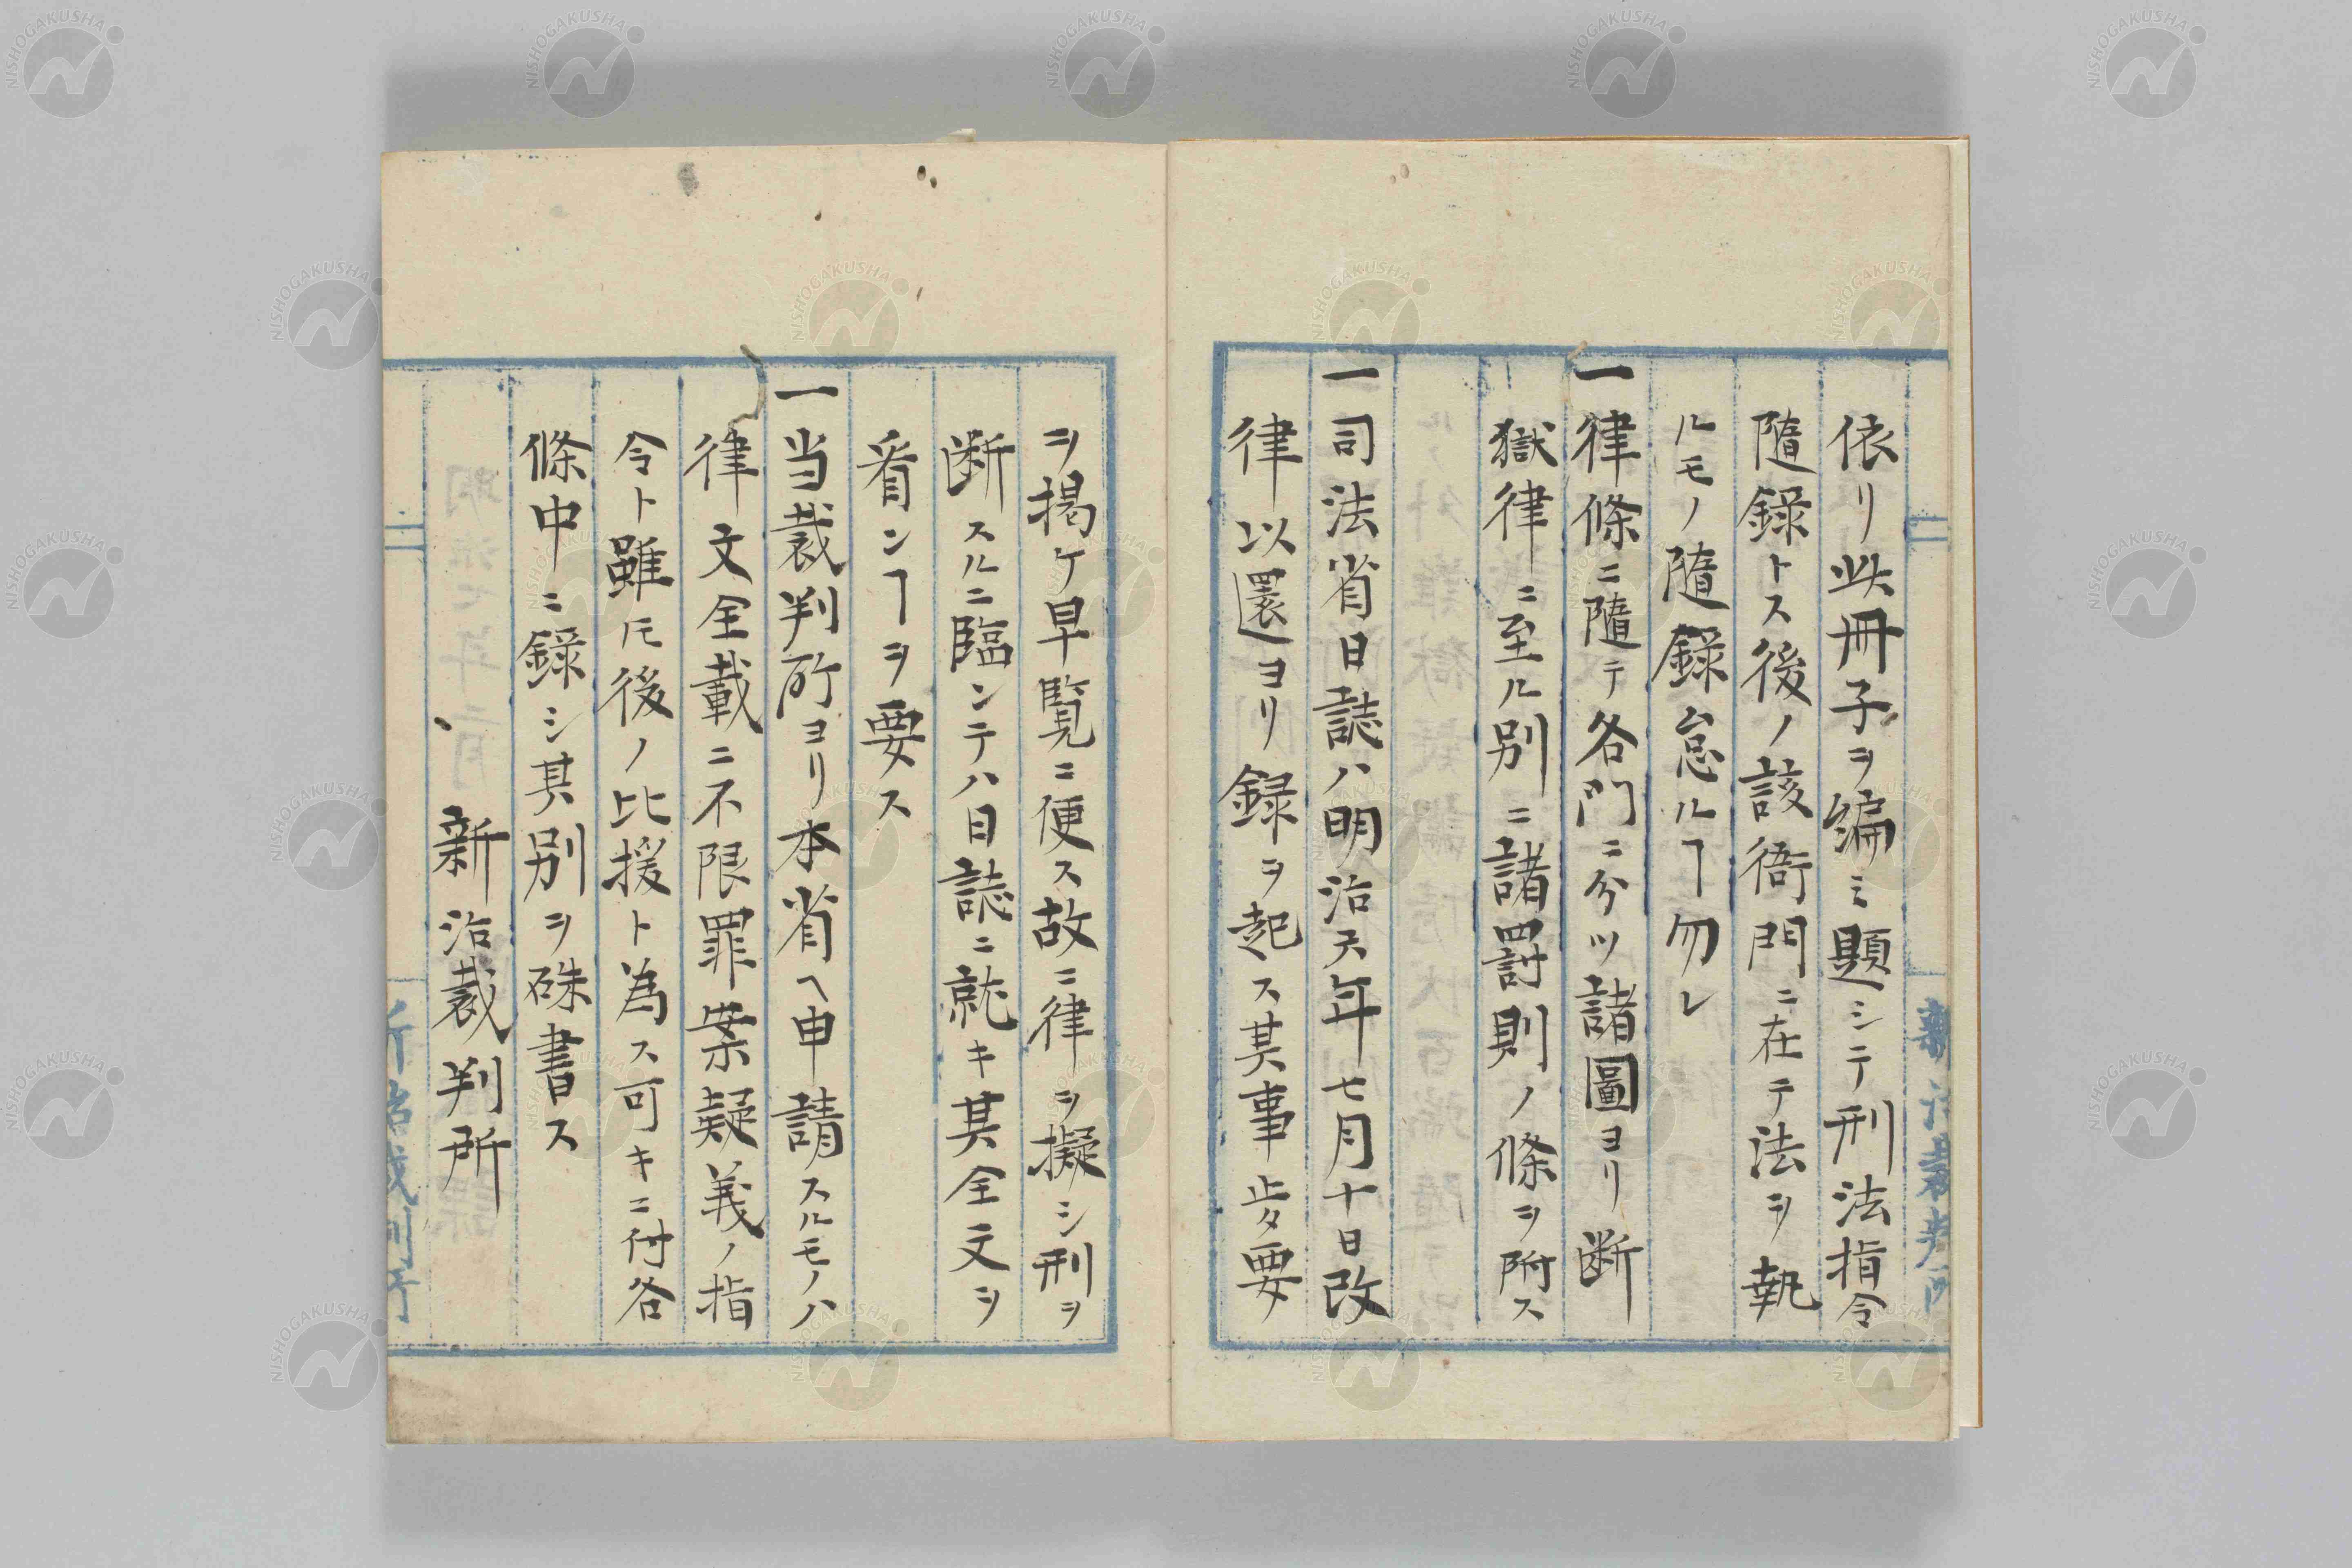 依リ此冊子ヲ編ミ題シテ刑法指令
隨錄トス後ノ該衙門ニ在テ法ヲ執
ルモノ隨錄怠ルヿ勿レ
一律條ニ隨テ各門ニ分ツ諸圖ヨリ断
獄律ニ至ル別ニ諸罰則ノ條ヲ附ス
一司法省日誌ハ明治六年七月十日改
律以還ヨリ録ヲ起ス其事歩要
ヲ掲ケ早覧ニ便ス故ニ律ヲ擬シ刑ヲ
断スルニ臨ンテハ日誌ニ就キ其全文ヲ
看ンヿヲ要ス
一当裁判所ヨリ本省ヘ申請スルモノハ
律文全載ニ不限罪案疑義ノ指
令ト雖ㇳモ後ノ比援ト為ス可キニ付各
條中ニ録シ其別ヲ硃書ス
新治裁判所
新治裁判所
NISHOGAKUSHA